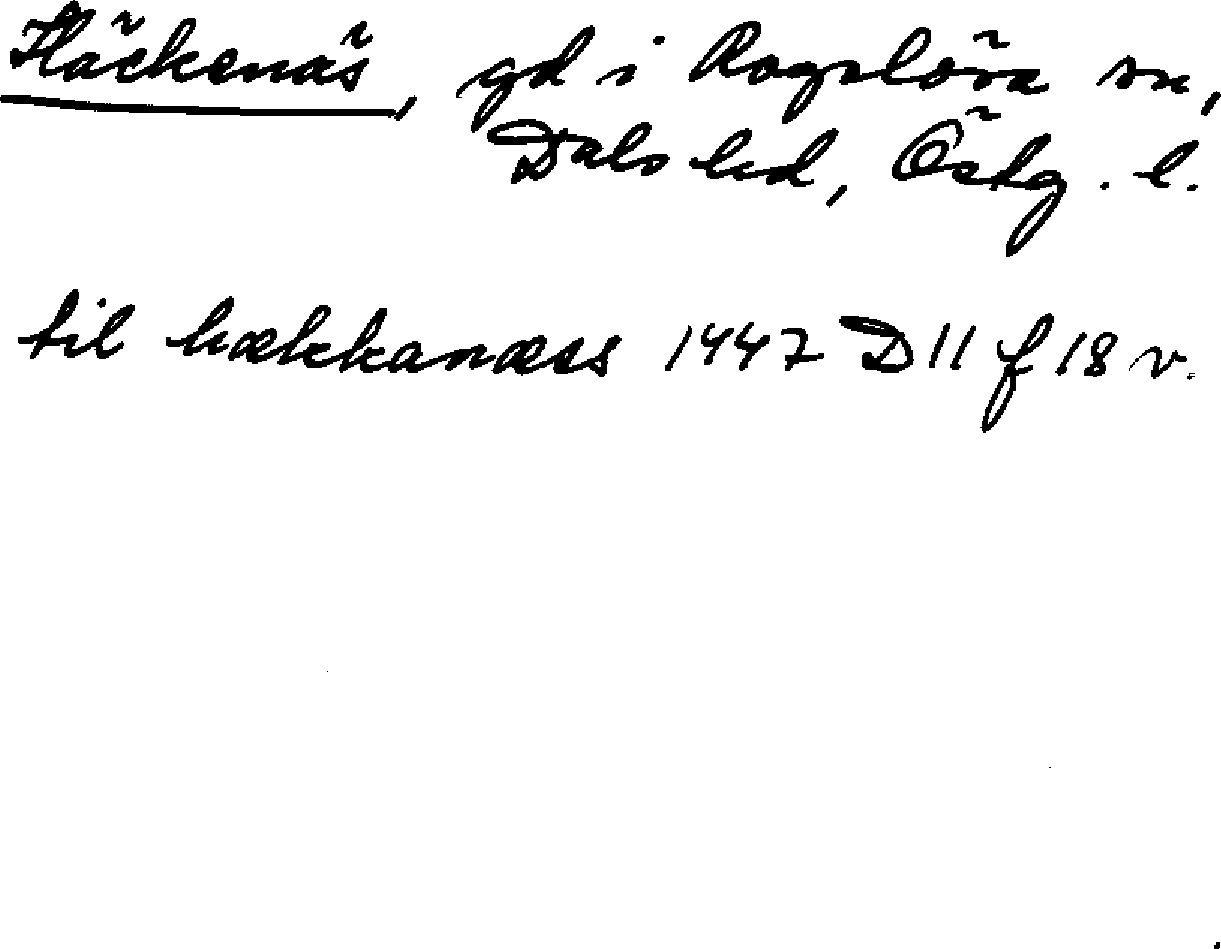 Häckenäs, gd i Rogslösa sn,
Dals hd, Östg. l.
til hækkanæss 1447 D 11 f 18 v.